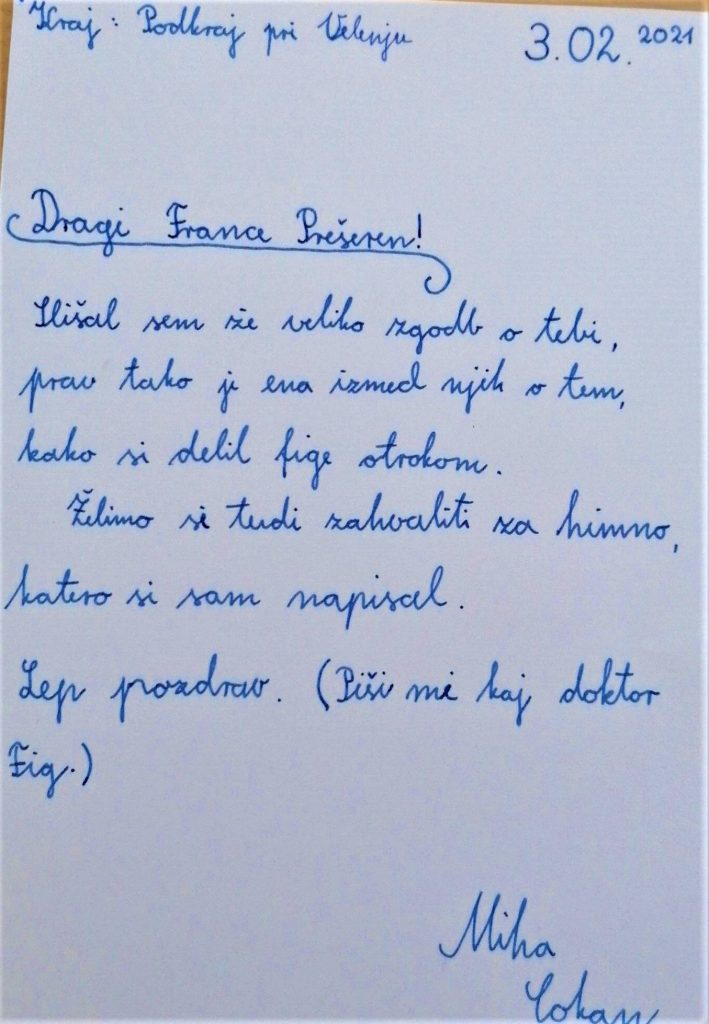 Kraj: Podkraj pri Velenju 3.02.2021
Dragi France Prešeren!
Slišal sem že veliko zgodb o tebi,
prav tako je ena izmed njih o tem,
kako si delil fige otrokom.
Želimo se tudi zahvaliti za himno,
katero si sam napisal.
Lep pozdrav. (Piši mi kaj doktor
Fig.)
Miha
Cokan